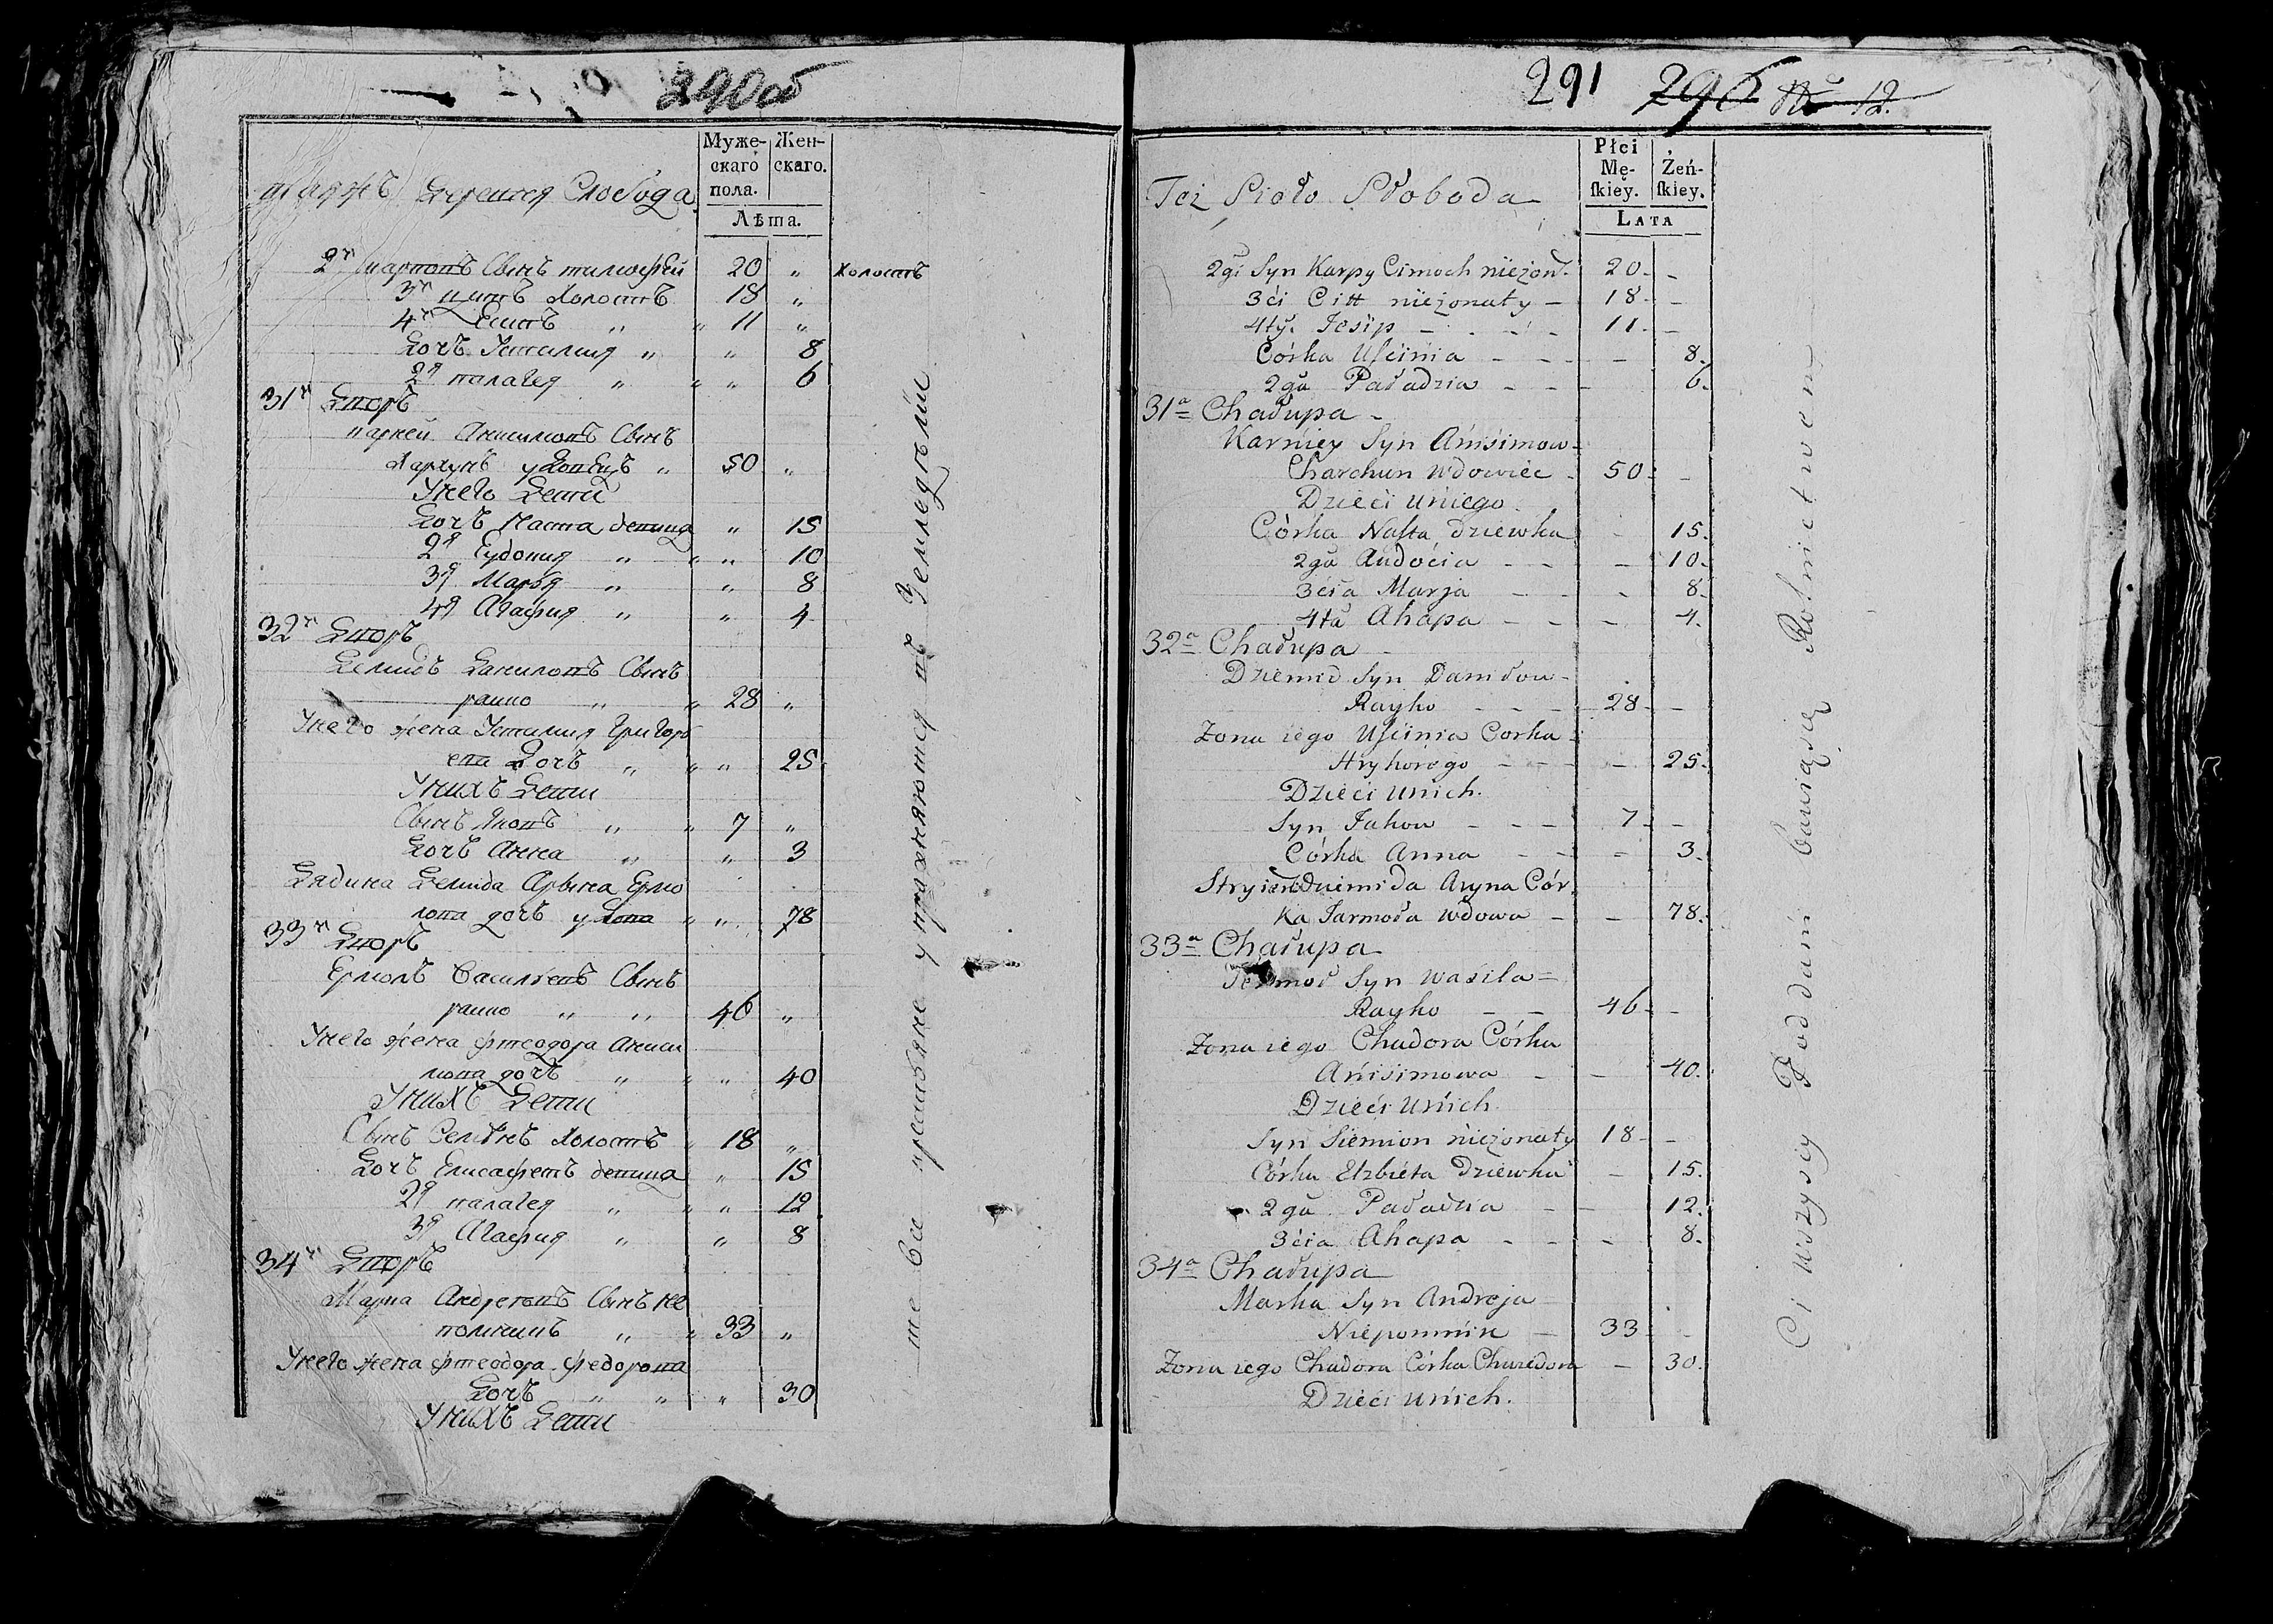 290 об
Муже-
скаго
пола.
Жен-
скаго.
Лѣта.
таяжъ Деревня Слобода
2й Карповъ Сынъ тимофей 20 „ холостъ
3й титъ Холостъ 18 „
4й Есипъ „ „ 11 „
Дочь Устиния „ „ 8
2я палагея „ „ „ 6
31й Дворъ
Карней Анисимовъ Сынъ
Хархунъ удовецъ „ 50 „
У него Дети
Дочь Наста девица „ 15
2я Еудокия „ „ „ 10
3я Марья „ „ 8
4я Агафия „ „ 4
32й Дворъ
Демидъ Даниловъ Сынъ
райко „ „ 28 „
У него жена Устиния Григорь
ева Дочь „ „ „ 25
У нихъ Дети
Сынъ Яковъ „ „ 7 „
Дочь Анна „ „ 3
Дядина Демида Арына Ермо
лова дочь удова „ „ 78
33й Дворъ
Ермолъ Васильевъ Сынъ
райко „ „ 46 „
У него жена фтеодора Аниси
мова дочь „ „ „ 40
У нихъ Дети
Сынъ Семенъ Холостъ „ 18 „
Дочь Елисафетъ девица „ 15
2я палагея „ „ „ 12
3я Агафия „ „ 8
34й Дворъ
Марка Андреевъ Сынъ не
помнищъ „ „ 33 „
У него жена фтеодора федорова
Дочь „ „ „ 30
У нихъ Дети
те все крестьяне упражняются въ Земледѣлии
291 296 № 12.
Płci
Mę-
ſkiey.
Żeń-
ſkiey.
LATA
Też Sioło Słoboda
2gi Syn Karpy Cimoch nieżon. 20 - -
3ći Citt nieżonaty - 18 - -
4ty. Jesip - - - 11 - -
Córka Uſcinia - - - 8.
2ga Paładzia - - - 6.
31a Chałupa -
Karniey Syn Anisimow -
Charchun Wdowiec - 50 - -
Dzieci uniego
Córka Naſta dziewka - 15.
2ga Audocia - - - 10.
3cia Marja - - - 8.
4ta Ahapa - - - 4.
32a Chałupa -
Dziemid Syn Daniłow -
Rayko - - - 28 - -
Zona iego Uſcinia Corka -
Hryhorego - - - 25.
Dzieci unich.
Syn Jakow - - - 7 - -
Córka Anna - - - 3.
Stryina Dziemida Aryna Cór
ka Jarmoła wdowa - - 78.
33a Chałupa
Jermoł Syn Wasila -
Rayko - - 46 - -
Zona iego Chadora Córka
Anisimowa - - 40.
Dzieci unich
Syn Siemion nieżonaty 18 - -
Córka Elzbieta Dziewka - 15.
2ga Paładzia - - 12.
3cia Ahapa - - - 8.
34a Chałupa
Marka Syn Andreja
Niepomnin - 33 - -
Zona iego Chadora Córka Chwedora - 30.
Dzieci unich.
Ci wszyscy Poddani bawiąsię Rolnictwem